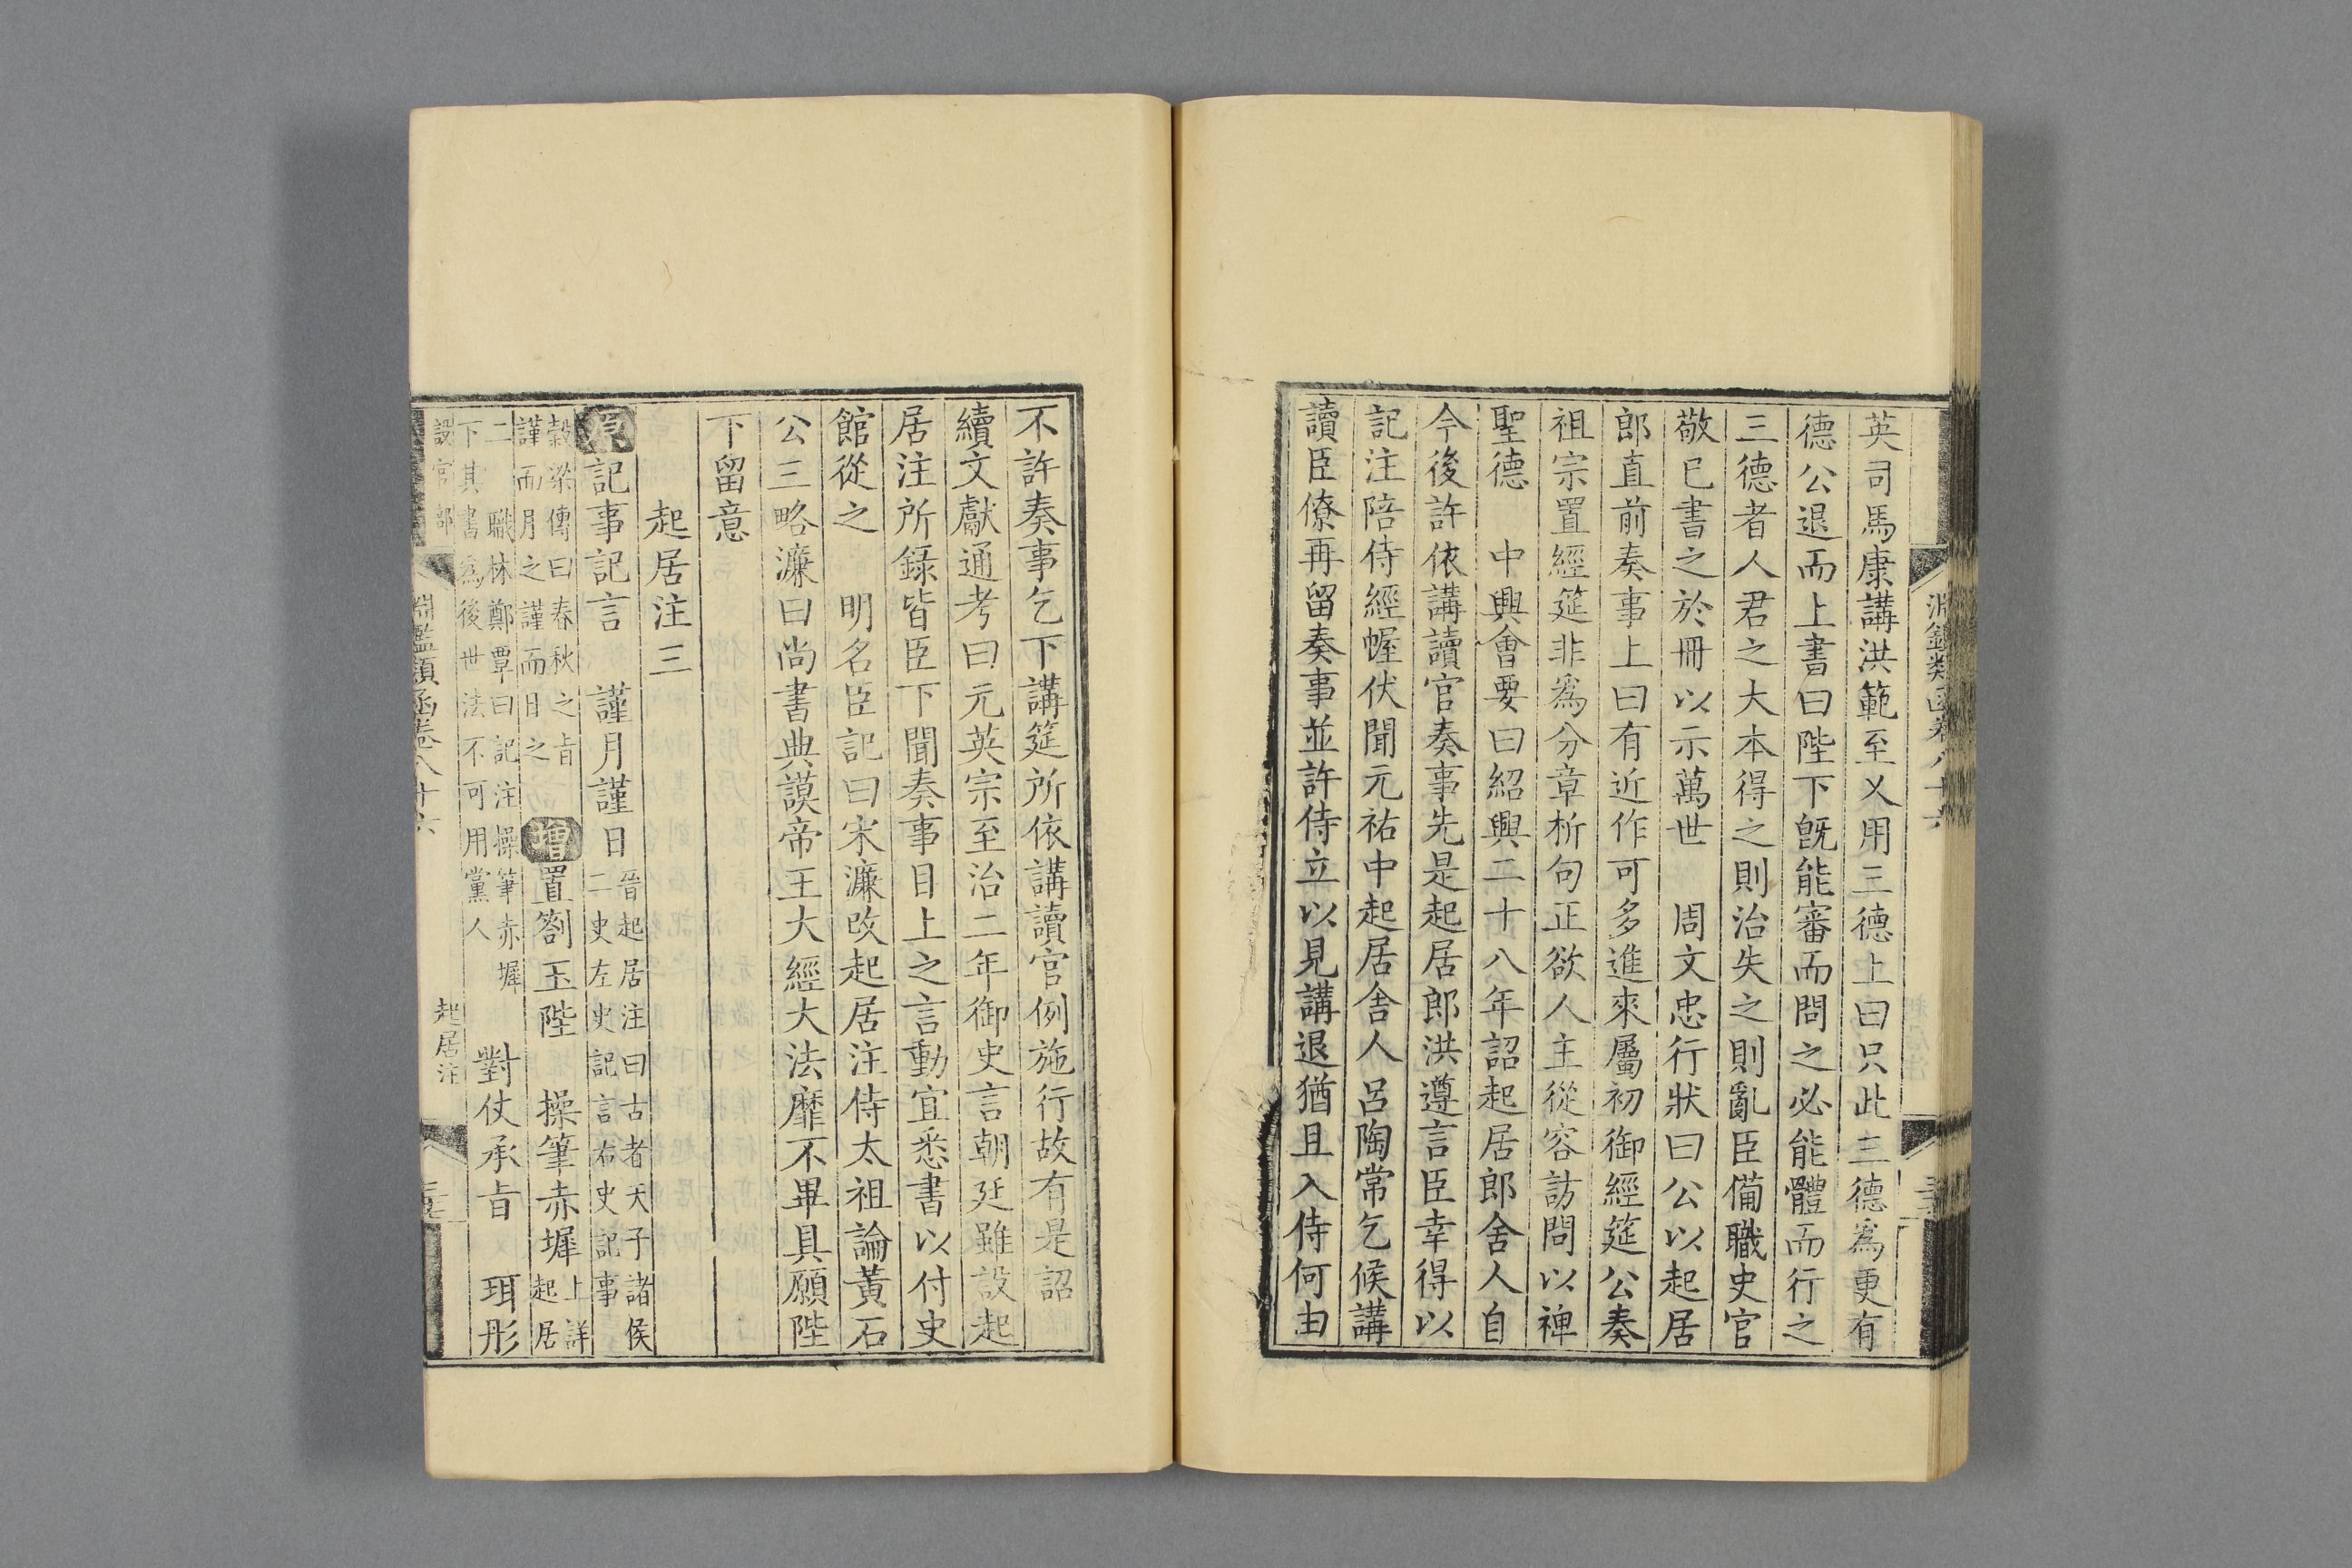 英司馬康講洪範至乂用三德上曰只此三德爲更有
德公退而上書曰陛下旣能審而問之必能體而行之
三德者人君之大本得之則治失之則亂臣備職史官
敬已書之於冊以示萬世　周文忠行狀曰公以起居
郎直前奏事上曰有近作可多進來屬初御經筵公奏
祖宗置經筵非爲分章析句正欲人主從容訪問以裨
聖德　中興會要曰紹興二十八年詔起居郎舍人自
今後許依講讀官奏事先是起居郎洪遵言臣幸得以
記注陪侍經幄伏聞元祐中起居舍人呂陶常乞候講
讀臣僚再留奏事並許侍立以見講退猶且入侍何由
不許奏事乞下講筵所依講讀官例施行故有是詔
續文獻通考曰元英宗至治二年御史言朝廷雖設起
居注所錄皆臣下聞奏事目上之言動宜悉書以付史
館從之　明名臣記曰宋濂改起居注侍太祖論黃石
公三略濂曰尚書典謨帝王大經大法靡不畢具願陛
下留意
起居注三
原記事記言　謹月謹日晉起居注曰古者天子諸侯二史左史記言右史記事
穀梁傳曰春秋之旨謹而月之謹而日之　增置劄玉陛　操筆赤墀上詳起居
二職林鄭覃曰記注操筆赤墀下其書爲後世法不可用黨人　對仗承旨　珥彤
設官部
淵鑑類函卷八十六
起居注